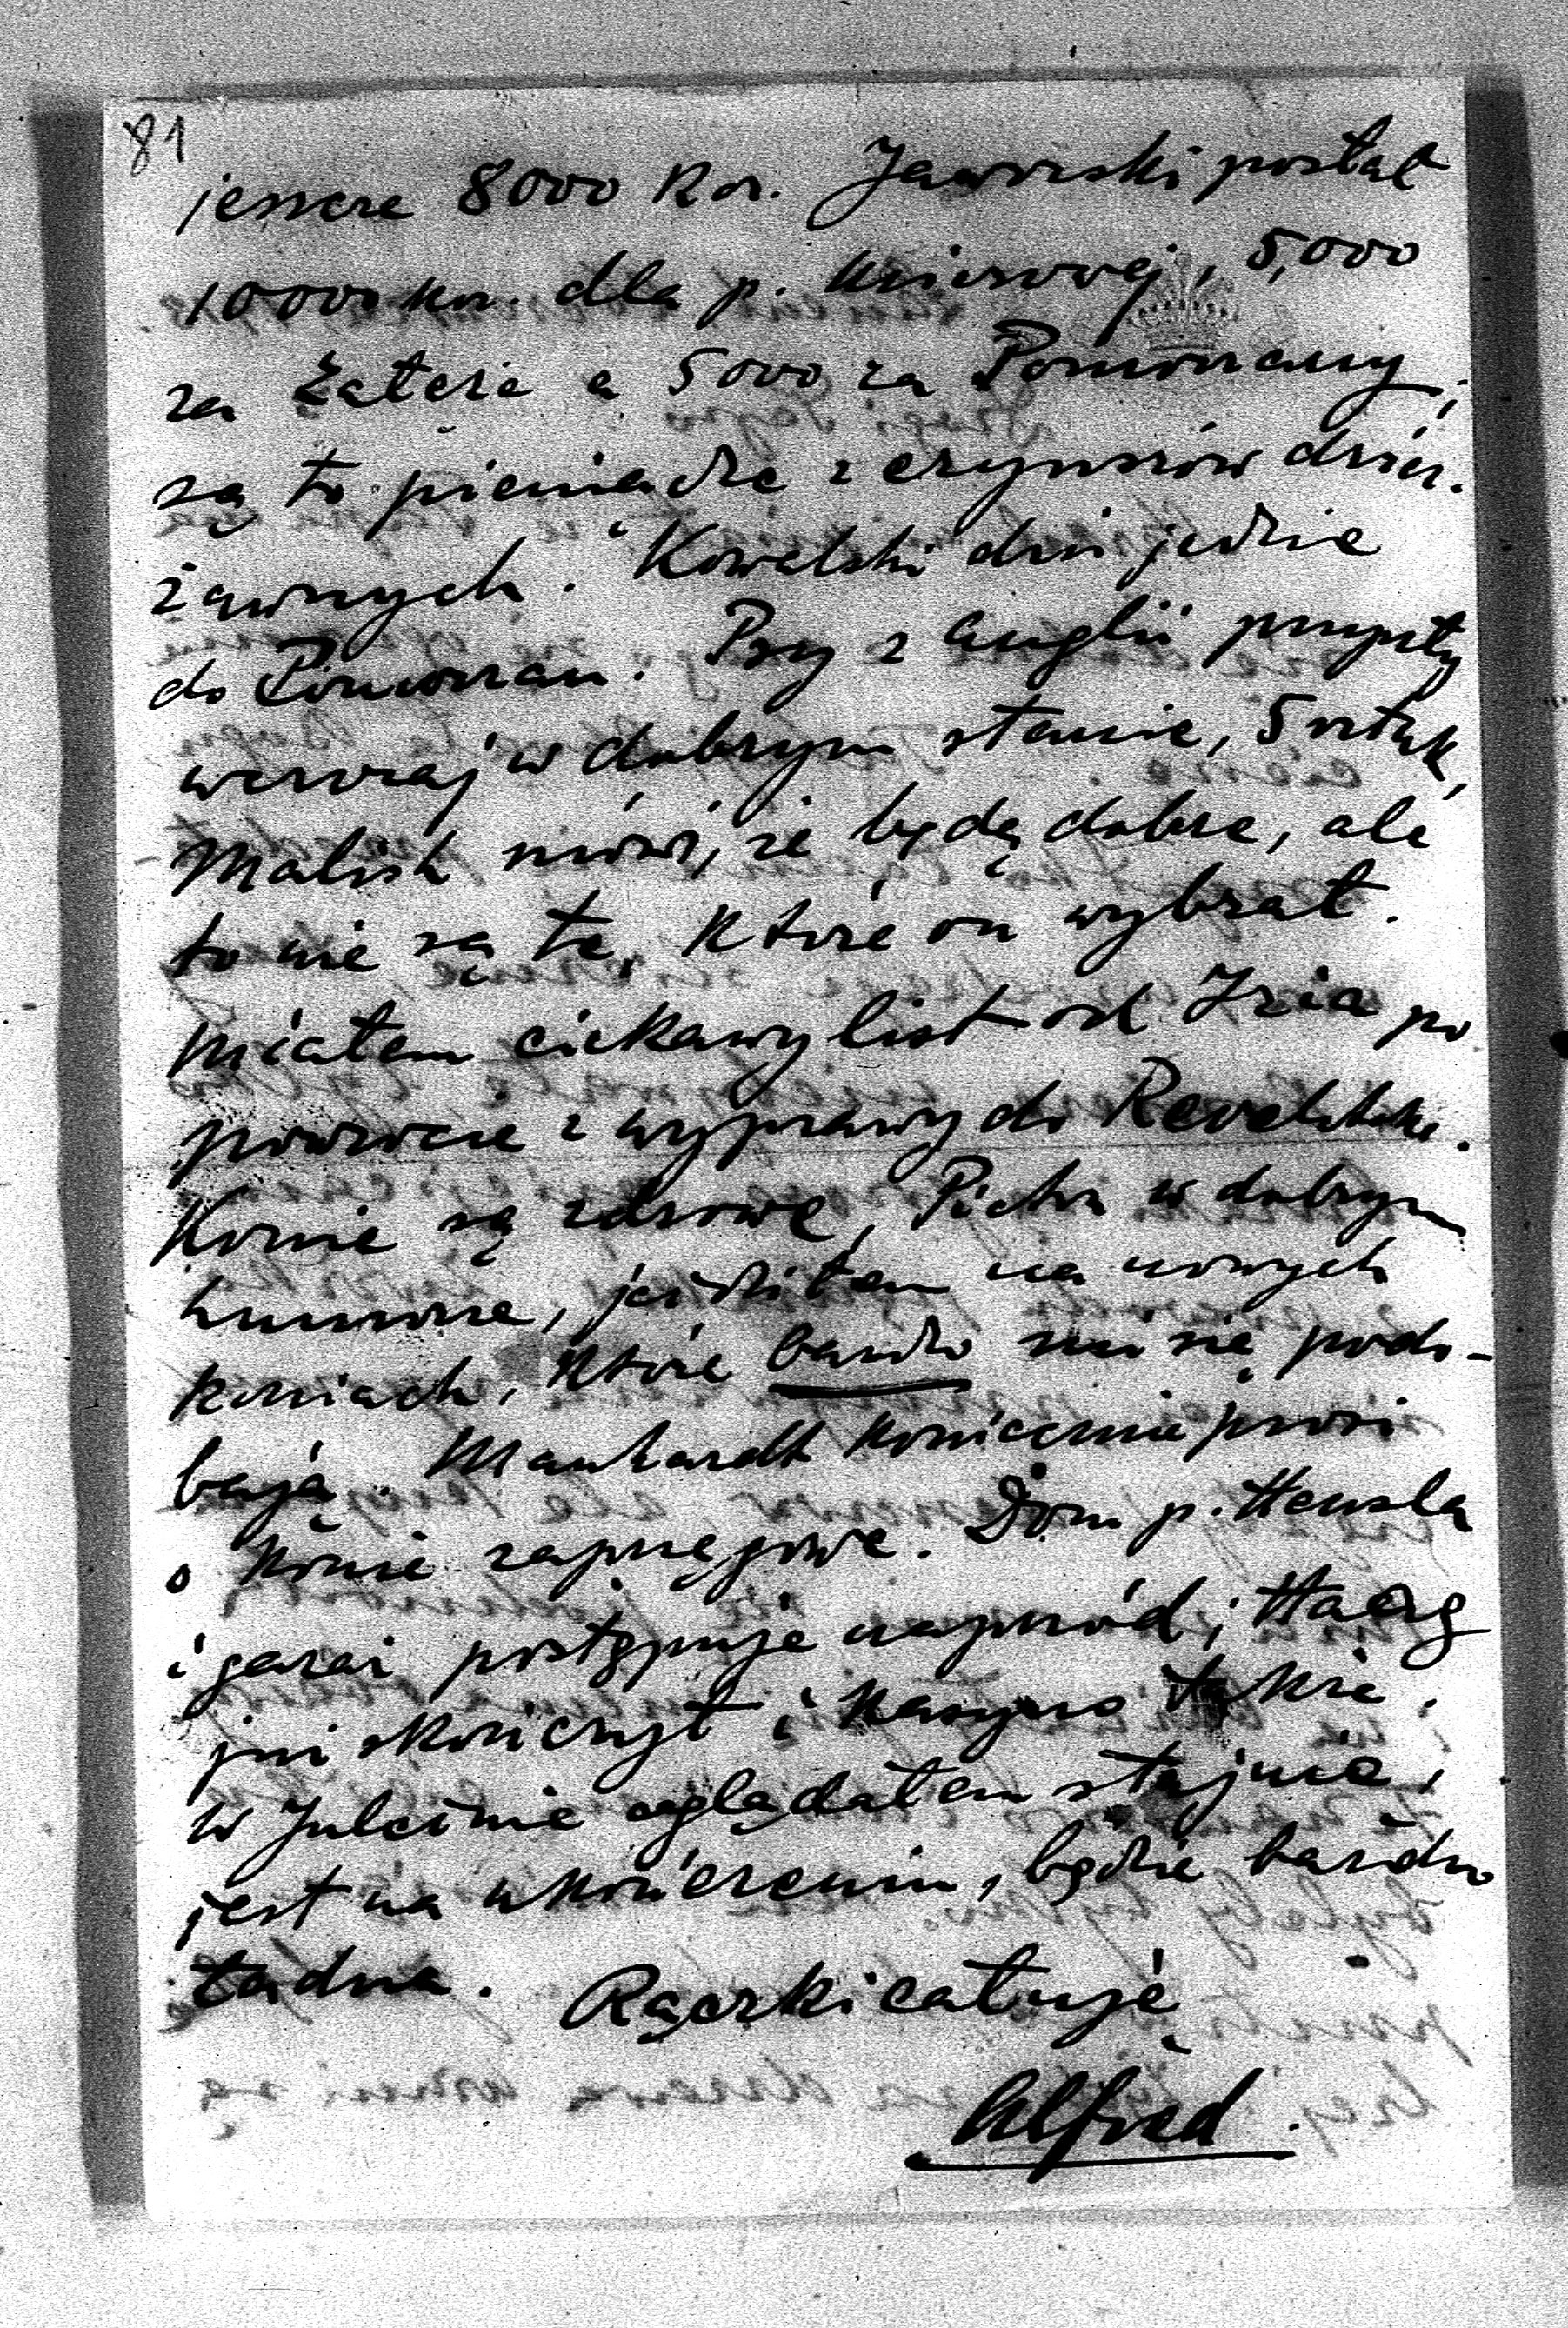 81
jeszcze 8000 Kor. Jaworski posłał
10000 kor. dla p. 5,000
za Zatorze a 5000 za Pomorzany,
są to pieniądze z czynszów dzier-
żawnych. Kowalski dziś jedzie
do Pomorzan. Psy z Anglii przyszły
wczoraj w dobrym stanie, 5 sztuk,
Malish mówi, że będą dobre, ale
to nie są te, które on wybrał.
Miałem ciekawy list od Izia po
powrocie z wyprawy do
Konie są zdrowe, w dobrym
humorze, jeździłem na nowych
koniach, które bardzo mi się podo-
bają. Manhardt koniecznie prosi
o konie zaprzęgowe. Dom p. Hensla
i garaż postępuje naprzód;
już skończył i kasyno także.
W Julcinie oglądałem stajnię,
jest na ukończeniu, będzie bardzo
ładna. Rączki całuję
Alfred.